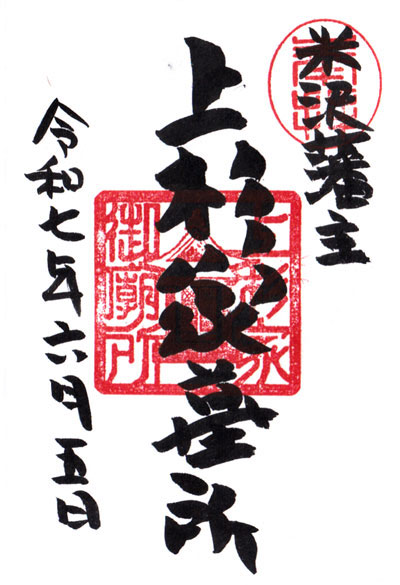 米沢藩主
上杉家墓所
令和七年六月五日
上杉家
御廟所